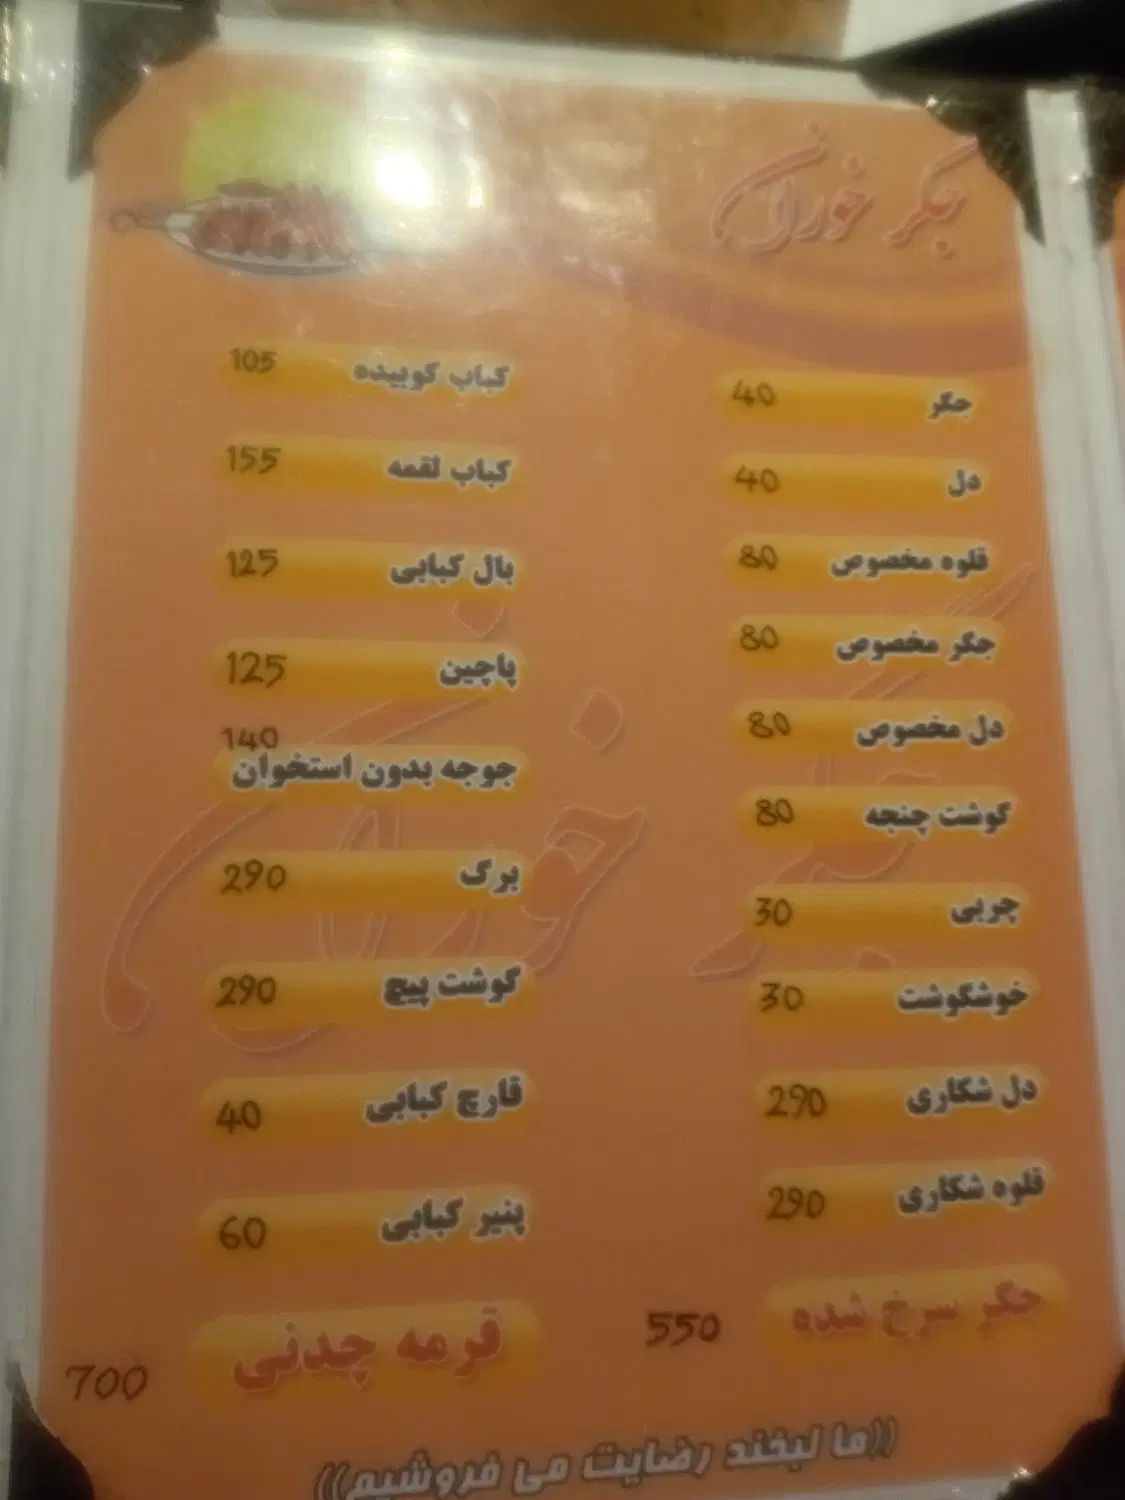 جگر خوران
جگر 40
دل 40
قلوه مخصوص 80
جگر مخصوص 80
دل مخصوص 80
گوشت چنجه 80
چربی 30
خوشگوشت 30
دل شکاری 290
قلوه شکاری 290
جگر سرخ شده 550
کباب کوبیده 105
کباب لقمه 155
بال کبابی 125
پاچین 125
140
جوجه بدون استخوان
برگ 290
گوشت پیچ 290
قارچ کبابی 40
پنیر کبابی 60
قرمه چدنی 700
جگر خوران
((ما لبخند رضایت می فروشیم))